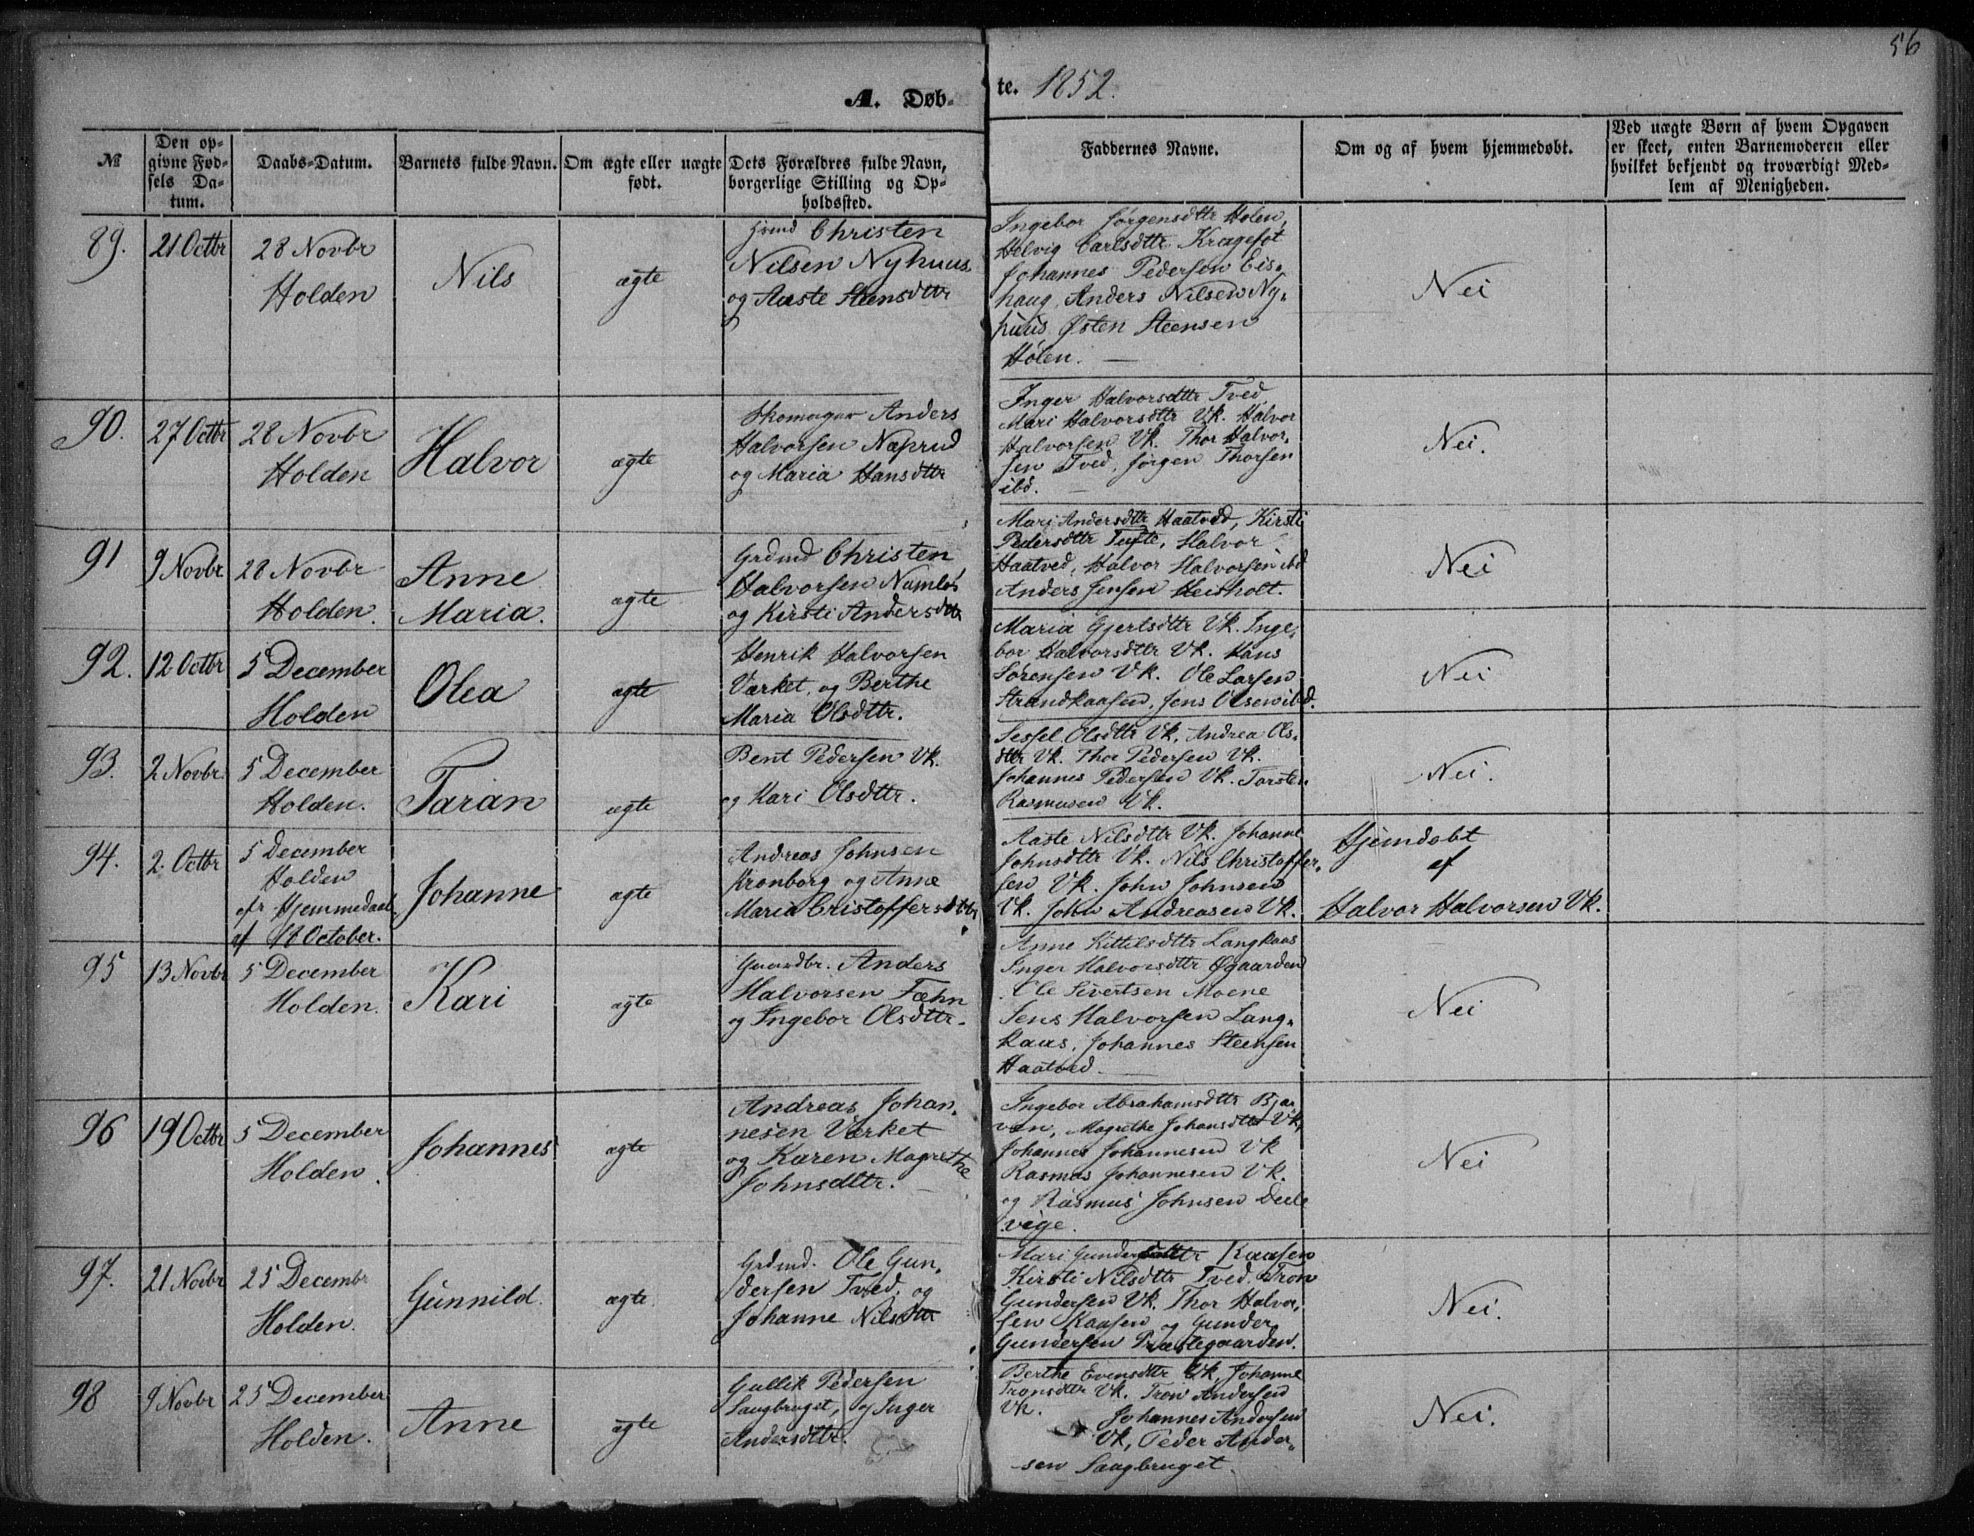 56
A. Døb-
te. 1852.
№
Den op-
givne Fød-
sels Da-
tum.
Daabs-Datum.
Barnets fulde Navn.
Om ægte eller uægte
født.
Dets Forældres fulde Navn,
borgerlige Stilling og Op-
holdssted.
Faddernes Navne.
Om og af hvem hjemmedøbt.
Ved uægte Børn af hvem Opgaven
er skeet, enten Barnemoderen eller
hvilket bekjendt og troværdigt Med-
lem af Menigheden.
89.
21 Octbr
28 Novbr
Holden
Nils
ægte
Christen
Nilsen Nyhuus
og Aaste Stensdttr
Ingebor Jørgensdttr Holen,
Helvig Carlsdttr Kragefot
Johannes Pedersen Eis-
haug, Anders Nilsen Ny-
huus Østen Steensen
Hølen.
Nei
90.
27 Octbr
28 Novbr
Holden
Halvor
ægte
Skomager Anders
Halvorsen Næprud
og Maria Hansdttr
Inger Halvorsdttr Tved
Mari Halvorsdttr Vk. Halvor
Halvorsen Vk. Thor Halvor-
sen Tved, Jørgen Thorsen
ibd.
Nei.
91
9 Novbr
28 Novbr
Holden.
Anne
Maria.
ægte
Grdmd Christen
Halvorsen Namløs
og Kirsti Andersdttr
Mari Andersdttr Haatved, Kirsti
Pedersdttr Tufte, Halvor
Haatved, Halvor Halvorsen ibd
Anders Jensen Heisholt.
Nei
92.
12 Octbr
5 December
Holden
Olea
ægte
Henrik Halvorsen
Værket, og Berthe
Maria Olsdttr.
Maria Gjertsdttr Vk. Inge-
bor Halvorsdttr Vk. Hans
Sørensen Vk. Ole Larsen
Strandkaasen, Jens Olsen ibd.
Nei
93.
2 Novbr.
5 December
Holden.
Taran
ægte
Bent Pedersen Vk.
og Kari Olsdttr.
Sessel Olsdttr Vk, Andrea Ols-
dttr Vk. Thor Pedersen Vk.
Johannes Pedersen Vk. Torsten
Rasmusen Vk.
Nei.
94.
2. Octbr
5 December
Holden
efr Hjemmedaab
af 18 October.
Johanne
ægte
Andreas Johnsen
Kronborg og Anne
Maria Cristoffersdttr
Aaste Nilsdttr Vk. Johanne
Johnsdttr Vk. Nils Christoffer-
sen Vk. John Johnsen
Vk. John Andreasen Vk.
Hjemdøbt
af
Halvor Halvorsen Vk.
95
13 Novbr
5 December
Holden.
Kari
ægte
Gaardbr. Anders
Halvorsen Fæhn
og Ingebor Olsdttr.
Anne Kittilsdttr Langkaas
Inger Halvorsdttr Øgaarden
Ole Sivertsen Moene
Jens Halvorsen Lang-
kaas, Johannes Steensen
Haatved.
Nei
96
19 Octbr
5 December
Holden.
Johannes
ægte
Andreas Johan-
nesen Værket
og Karen Magrethe
Johnsdttr.
Ingebor Abrahamsdttr Bjar
ven, Magrethe Johansdttr Vk,
Johannes Johannesen Vk
Rasmus Johannesen Vk.
og Rasmus Johnsen Deele
vige.
Nei
97.
21 Novbr
25 Decembr
Holden.
Gunnild.
ægte.
Grdmd. Ole Gun-
dersen Tved, og
Johanne Nilsdttr
Mari Gundersdttr Kaasen
Kirsti Nilsdttr Tved. Tron
Gundersen Vk. Thor Halvor-
sen Kaasen og Gunder
Gundersen Præstegaarden.
Nei.
98
9 Novbr
25 December
Holden.
Anne
ægte
Gullik Pedersen
Saugbruget, og Inger
Andersdttr.
Berthe Evensdttr Vk, Johanne
Tronsdttr Vk. Tron Andersen
Vk.
Johannes Andersen
Vk, Peder Ander-
sen Saugbruget.
Nei.